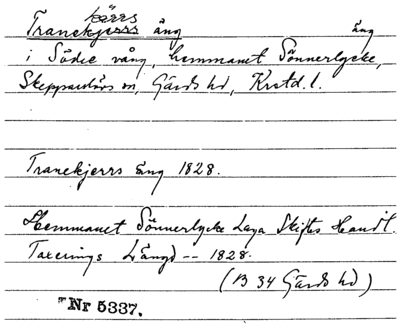 kärrs
Tranekjerrs äng äng
i Södre vång, hemmanet Sönnerlycke,
Skepparslövs sn, Gärds hd, Krstd. l.
Tranekjerrs Äng 1828.
Hemmanet Sönnerlycke Laga Skiftes Handl.
Taxerings Längd -- 1828.
(B 34 Gärds hd)
Nr 5337.